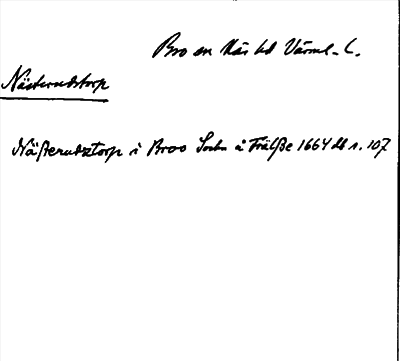 Bro sn Näs hd Värml. L.
Nästerudstorp
Näßerudztorp i Broo Sochn å Frälße 1664 Jb s. 107